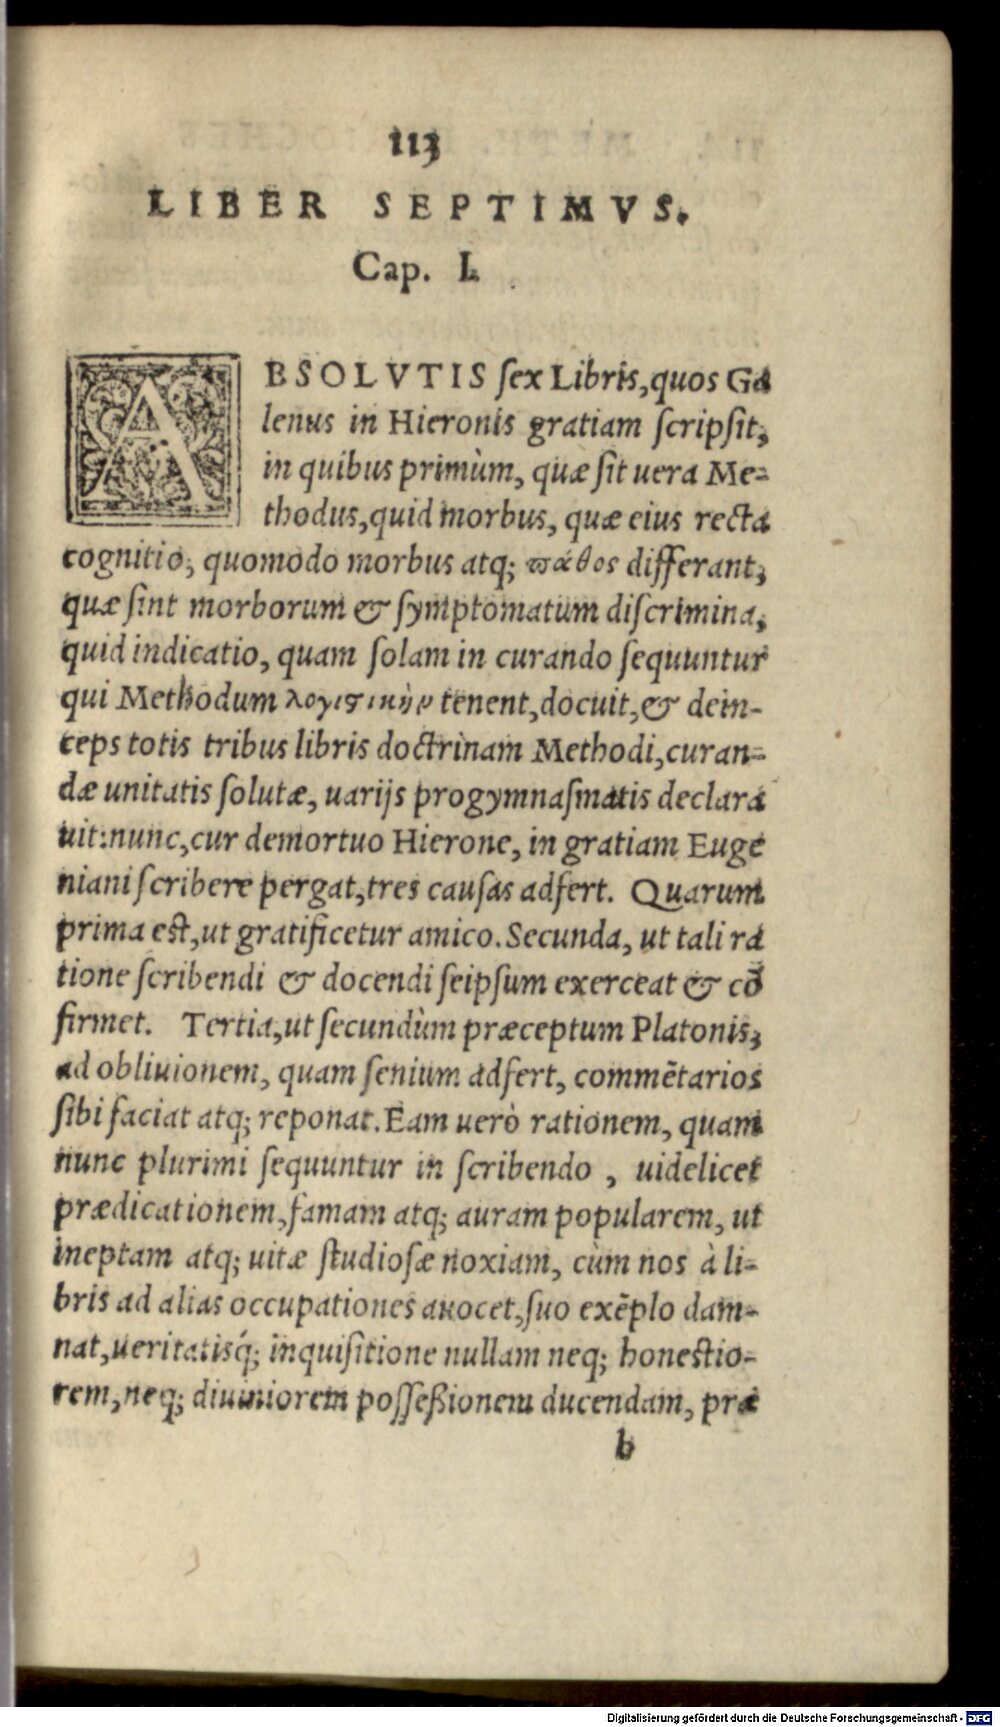 113
LIBER SEPTIMVS.
Cap. I.
ABSOLVTIS sex Libris, quos Ga
lenus in Hieronis gratiam scripsit,
in quibus primùm, quæ sit uera Me-
thodus, quid morbus, quæ eius recta
cognitio, quomodo morbus atq; πάθος differant,
quæ sint morborum & symptomatum discrimina,
quid indicatio, quam solam in curando sequuntur
qui Methodum λογιστικὴν tenent, docuit, & dein-
ceps totis tribus libris doctrinam Methodi, curan-
dæ unitatis solutæ, uarijs progymnasmatis declara
uit: nunc, cur demortuo Hierone, in gratiam Euge
niani scribere pergat, tres causas adfert. Quarum
prima est, ut gratificetur amico. Secunda, ut tali ra
tione scribendi & docendi seipsum exerceat & cō
firmet. Tertia, ut secundùm præceptum Platonis,
ad obliuionem, quam senium adfert, commẽtarios
sibi faciat atq; reponat. Eam uerò rationem, quam
nunc plurimi sequuntur in scribendo, uidelicet
prædicationem, famam atq; auram popularem, ut
ineptam atq; uitæ studiosæ noxiam, cùm nos à li-
bris ad alias occupationes auocet, suo exẽplo dam-
nat, ueritatisq́; inquisitione nullam neq; honestio-
rem, neq; diuiniorem posseßionem ducendam, præ
b
Digitalisierung gefördert durch die Deutsche Forschungsgemeinschaft - DFG